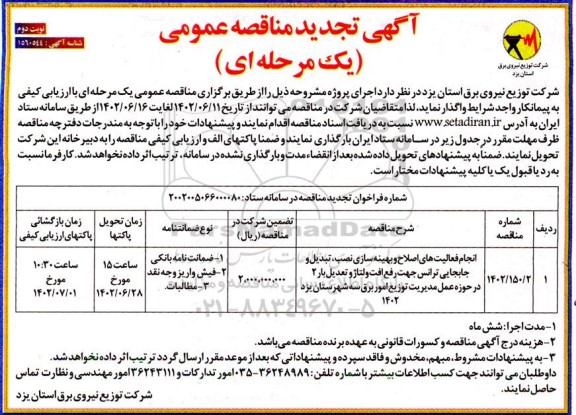 آگهی تجدید مناقصه عمومی
(یک مرحله ای)
نوبت دوم
شناسه آگهی: ۱۵۶۰۵۴۴
شرکت توزیع نیروی برق
استان یزد
شرکت توزیع نیروی برق استان یزد در نظر دارد اجرای پروژه مشروحه ذیل را از طریق برگزاری مناقصه عمومی یک مرحله ای با ارزیابی کیفی
به پیمانکار واجد شرایط واگذار نماید، لذا متقاضیان شرکت در مناقصه می توانند از تاریخ ۱۴۰۲/۰۶/۱۱ لغایت ۱۴۰۲/۰۶/۱۶ از طریق سامانه ستاد
ایران به آدرس www.setadiran.ir نسبت به دریافت اسناد مناقصه اقدام نمایند و پیشنهادات خود را با توجه به مندرجات دفترچه مناقصه
ظرف مهلت مقرر در جدول زیر در سامانه ستاد ایران بارگذاری نمایند. وضمنا پاکتهای الف و ارزیابی کیفی مناقصه را به دبیرخانه این شرکت
تحویل نمایند. ضمنا به پیشنهادهای تحویل داده شده بعد از انقضاء مدت و بارگذاری نشده در سامانه، ترتیب اثر داده نخواهد شد. کارفرما نسبت
به رد یا قبول یک یا کلیه پیشنهادات مختار است.
شماره فراخوان تجدید مناقصه در سامانه ستاد: ۲۰۰۲۰۰۵۰۶۶۰۰۰۰۸۰
ردیف
شماره مناقصه
شرح مناقصه
تضمین شرکت در مناقصه (ریال)
نوع ضمانتنامه
زمان تحویل پاکتها
زمان بازگشائی پاکتهای ارزیابی کیفی
۱
۱۴۰۲/۱۵۰/۲
انجام فعالیت های اصلاح و بهینه سازی نصب، تبدیل و
جابجایی ترانس جهت رفع افت ولتاژ و تعدیل بار ۲
در حوزه عمل مدیریت توزیع امور برق سه شهرستان یزد
۱۴۰۲
۲.۰۰۰.۰۰۰.۰۰۰
۱- ضمانت نامه بانکی
۲- فیش واریز وجه نقد
۳- مطالبات.
ساعت ۱۵
مورخ
۱۴۰۲/۰۶/۲۸
ساعت ۱۰:۳۰
مورخ
۱۴۰۲/۰۷/۰۱
۱- مدت اجرا: شش ماه
۲- هزینه درج آگهی مناقصه و کسورات قانونی به عهده برنده مناقصه می باشد.
۳- به پیشنهادات مشروط، مبهم، مخدوش و فاقد سپرده و پیشنهاداتی که بعد از موعد مقرر ارسال گردد ترتیب اثر داده نخواهد شد.
داوطلبان می توانند جهت کسب اطلاعات بیشتر با شماره تلفن: ۳۶۲۴۸۹۸۹-۰۳۵ امور تدارکات و ۳۶۲۴۳۱۱۱ امور مهندسی و نظارت تماس
حاصل نمایند.
شرکت توزیع نیروی برق استان یزد
۰۲۱-۸۸۳۴۹۶۷۰-۵